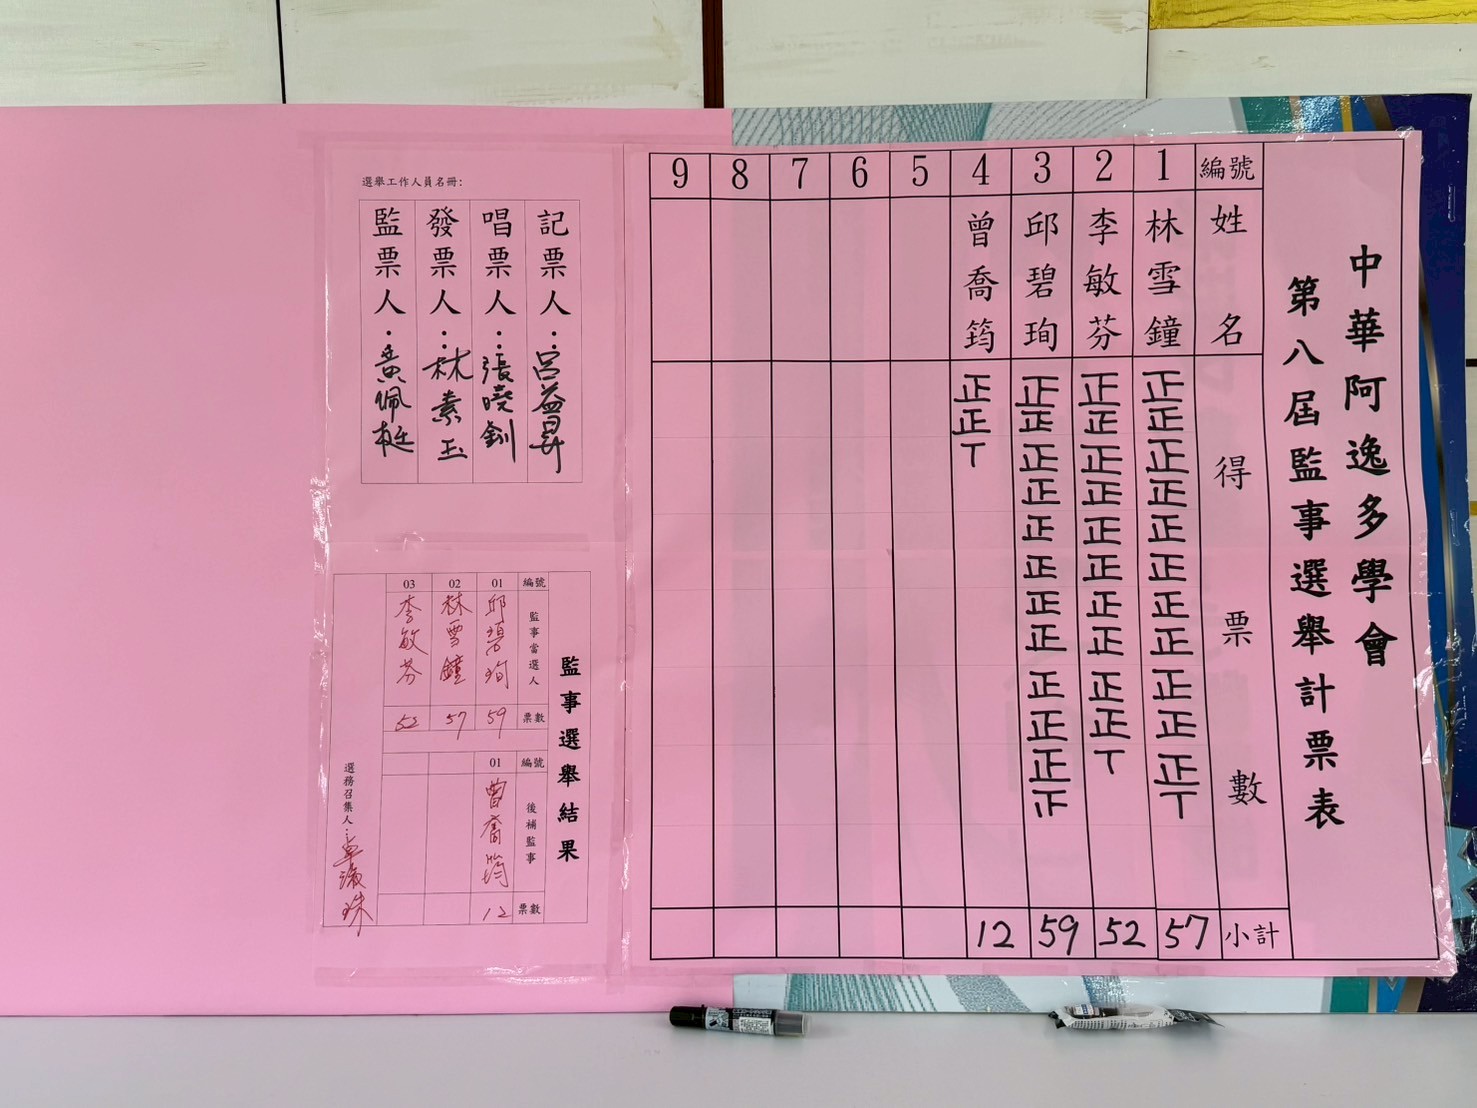 中華阿逸多學會
第八屆監事選舉計票表
編號 1 2 3 4 5 6 7 8 9
姓名 林雪鐘 李敏芬 邱碧珣 曾喬筠
得票數
正正正正正正正正正正正丅
正正正正正正正正正正丅
正正正正正正正正正正正正
正正丅
小計 57 52 59 12
選舉工作人員名冊：
記票人：呂益昇
唱票人：張曉釧
發票人：林素玉
監票人：黃佩梃
監事選舉結果
編號 01 02 03
監事當選人 邱碧珣 林雪鐘 李敏芬
票數 59 57 52
編號 01
後補監事 曾喬筠
票數 12
選務召集人：